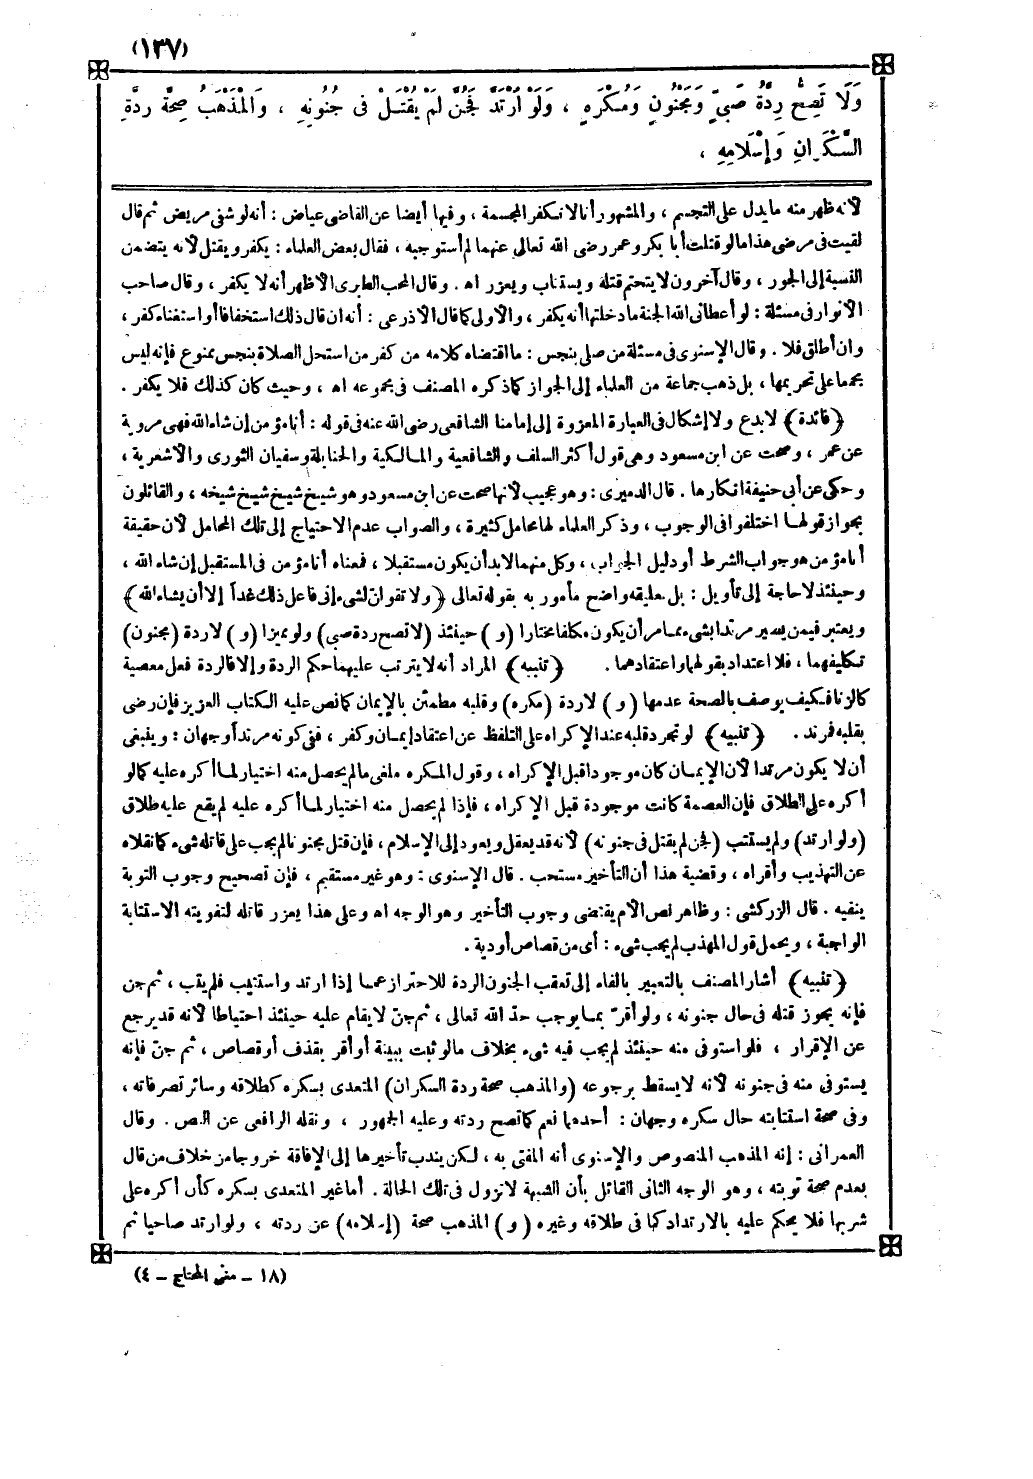 (١٣٧)
وَلَا تَصِحُّ رِدَّةُ صَبِيٍّ وَمَجْنُونٍ وَمُكْرَهٍ ، وَلَوْ ارْتَدَّ فَجُنَّ لَمْ يُقْتَلْ فِى جُنُونِهِ ، وَالْمَذْهَبُ صِحَّةُ رِدَّةِ
السَّكْرَانِ وَإِسْلَامِهِ ،
لأنه ظهر منه مايدل على التجسم ، والمشهور أنا لانكفر المجسمة ، وفيها أيضا عن القاضى عياض : أنه لو شفى مريض ثم قال
لقيت فى مرضى هذا مالو قتلت أبا بكر وعمر رضى الله تعالى عنهما لم أستوجبه ، فقال بعض العلماء : يكفر ويقتل لأنه يتضمن
النسبة إلى الجور ، وقال آخرون لا يتحتم قتله ويستتاب ويعزر اه . وقال المحب الطبرى الأظهر أنه لا يكفر ، وقال صاحب
الأنوار فى مسئلة : لو أعطانى الله الجنة مادخلتها أنه يكفر ، والأولى كما قال الأذرعى : أنه ان قال ذلك استخفافا أو استغناء كفر ،
وان أطلق فلا . وقال الإسنوى فى مسئلة من صلى بنجس : ما اقتضاه كلامه من كفر من استحل الصلاة بنجس ممنوع فإنه ليس
مجمعا على تحريمها ، بل ذهب جماعة من العلماء إلى الجواز كما ذكره المصنف فى مجموعه اه ، وحيث كان كذلك فلا يكفر .
﴿فائدة﴾ لابدع ولا إشكال فى العبارة المعزوة إلى إمامنا الشافعى رضى الله عنه فى قوله : أنا مؤمن إن شاء الله فهى مروية
عن عمر ، وصحت عن ابن مسعود وهى قول أكثر السلف والشافعية والمالكية والحنابلة وسفيان الثورى والأشعرية ،
وحكى عن أبى حنيفة انكارها . قال الدميرى : وهو عجيب لأنها صحت عن ابن مسعود وهو شيخ شيخ شيخ شيخه ، والقائلون
بجواز قولها اختلفوا فى الوجوب ، وذكر العلماء لها محامل كثيرة ، والصواب عدم الاحتياج إلى تلك المحامل لأن حقيقة
أنا مؤمن هو جواب الشرط أو دليل الجواب ، وكل منهما لابد أن يكون مستقبلا ، فمعناه أنا مؤمن فى المستقبل إن شاء الله ،
وحينئذ لاحاجة إلى تأويل : بل تعليقه واضح مأمور به بقوله تعالى ﴿ولا تقولن لشىء إنى فاعل ذلك غداً إلا أن يشاء الله﴾
ويعتبر فيمن يصير مرتدا بشىء مما مر أن يكون مكلفا مختارا (و) حينئذ (لا تصح ردة صبى) ولو مميزا (و) لا ردة (مجنون)
تكليفهما ، فلا اعتداد بقولهما واعتقادهما . ﴿تنبيه﴾ المراد أنه لا يترتب عليهما حكم الردة وإلا فالردة فعل معصية
كالزنا فكيف يوصف بالصحة عدمها (و) لا ردة (مكره) وقلبه مطمئن بالإيمان كما نص عليه الكتاب العزيز فإن رضى
بقلبه فمرتد . ﴿تنبيه﴾ لو تجرد قلبه عند الإكراه على التلفظ عن اعتقاد إيمان وكفر ، ففى كونه مرتدا وجهان : وينبغى
أن لا يكون مرتدا لأن الإيمان كان موجودا قبل الإكراه ، وقول المكره ملغى مالم يحصل منه اختيار لما أكره عليه كما لو
أكره على الطلاق فإن العصمة كانت موجودة قبل الإكراه ، فإذا لم يحصل منه اختيار لما أكره عليه لم يقع عليه طلاق
(ولو ارتد) ولم يستتب (فجن لم يقتل فى جنونه) لأنه قد يعقل ويعود إلى الإسلام ، فإن قتل مجنونا لم يجب على قاتله شىء كما نقلاه
عن التهذيب وأقراه ، وقضية هذا أن التأخير مستحب . قال الإسنوى : وهو غير مستقيم ، فإن تصحيح وجوب التوبة
ينفيه . قال الزركشى : وظاهر نص الأم يقتضى وجوب التأخير وهو الوجه اه وعلى هذا يعزر قاتله لتفويته الاستتابة
الواجبة ، ويحمل قول المهذب لم يجب شىء : أى من قصاص أو دية .
﴿تنبيه﴾ أشار المصنف بالتعبير بالفاء إلى تعقب الجنون الردة للاحتراز عما إذا ارتد واستتيب فلم يتب ، ثم جن
فإنه يجوز قتله فى حال جنونه ، ولو أقر بما يوجب حدّ الله تعالى ، ثم جنّ لا يقام عليه حينئذ احتياطا لأنه قد يرجع
عن الإقرار ، فلو استوفى منه حينئذ لم يجب فيه شىء بخلاف مالو ثبت ببينة أو أقر بقذف أو قصاص ، ثم جنّ فإنه
يستوفى منه فى جنونه لأنه لا يسقط برجوعه (والمذهب صحة ردة السكران) المتعدى بسكره كطلاقه وسائر تصرفاته ،
وفى صحة استتابته حال سكره وجهان : أحدهما نعم كما تصح ردته وعليه الجمهور ، ونقله الرافعى عن النص . وقال
العمرانى : إنه المذهب المنصوص والإسنوى أنه المفتى به ، لكن يندب تأخيرها إلى الإفاقة خروجا من خلاف من قال
بعدم صحة توبته ، وهو الوجه الثانى القائل بأن الشبهة لا تزول فى تلك الحالة . أما غير المتعدى بسكره كأن أكره على
شربها فلا يحكم عليه بالارتداد كما فى طلاقه وغيره (و) المذهب صحة (إسلامه) عن ردته ، ولو ارتد صاحيا ثم
(١٨ - مغنى المحتاج - ٤)